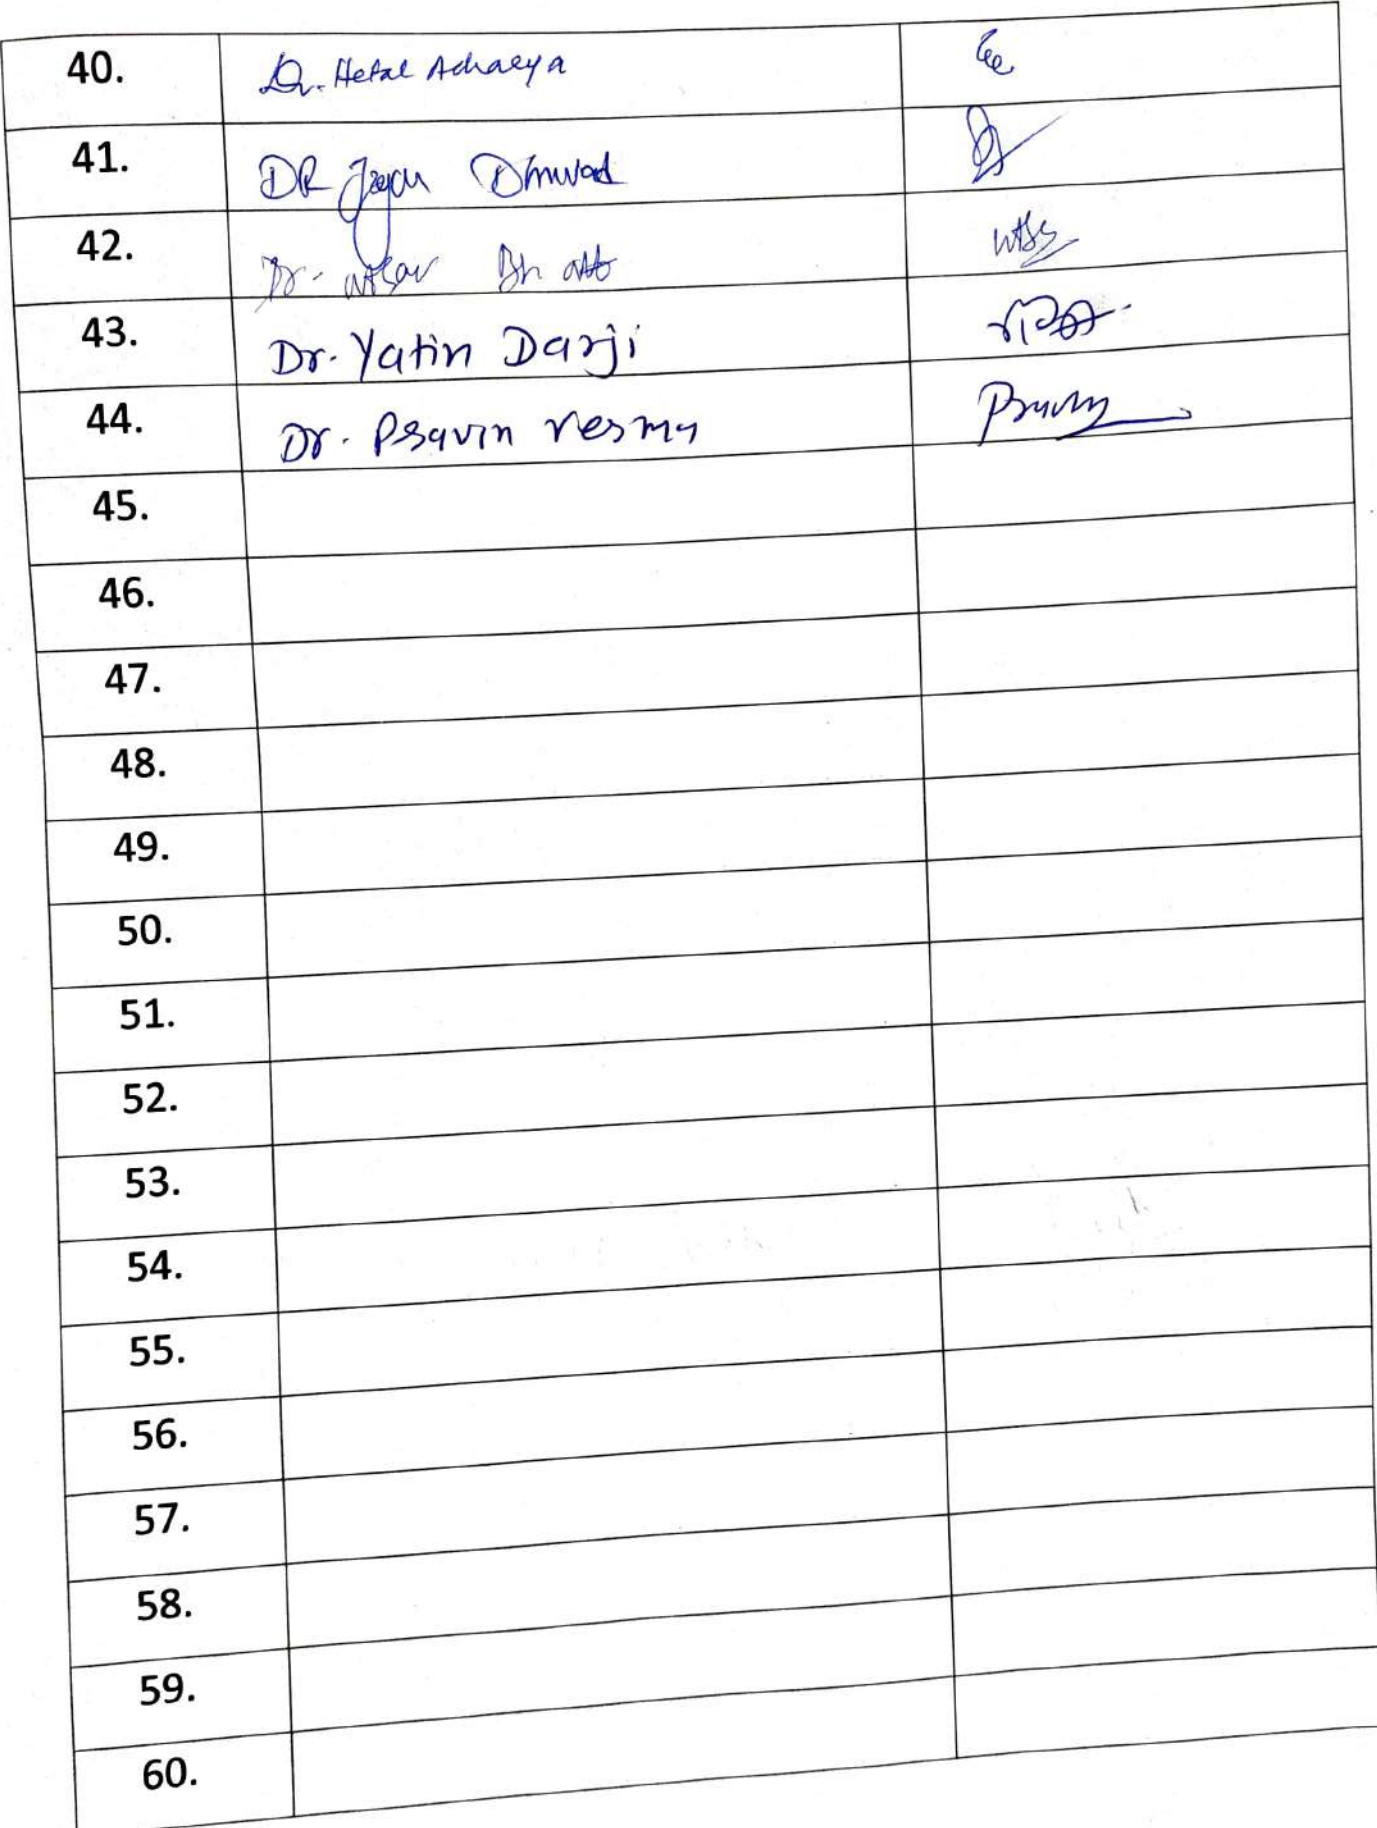 40. Dr. Hetal Acharya
41. DR Jayou Dhuvad
42. Dr. utsav Bhatt
43. Dr. Yatin Darji
44. Dr. Pravin Verma
45.
46.
47.
48.
49.
50.
51.
52.
53.
54.
55.
56.
57.
58.
59.
60.